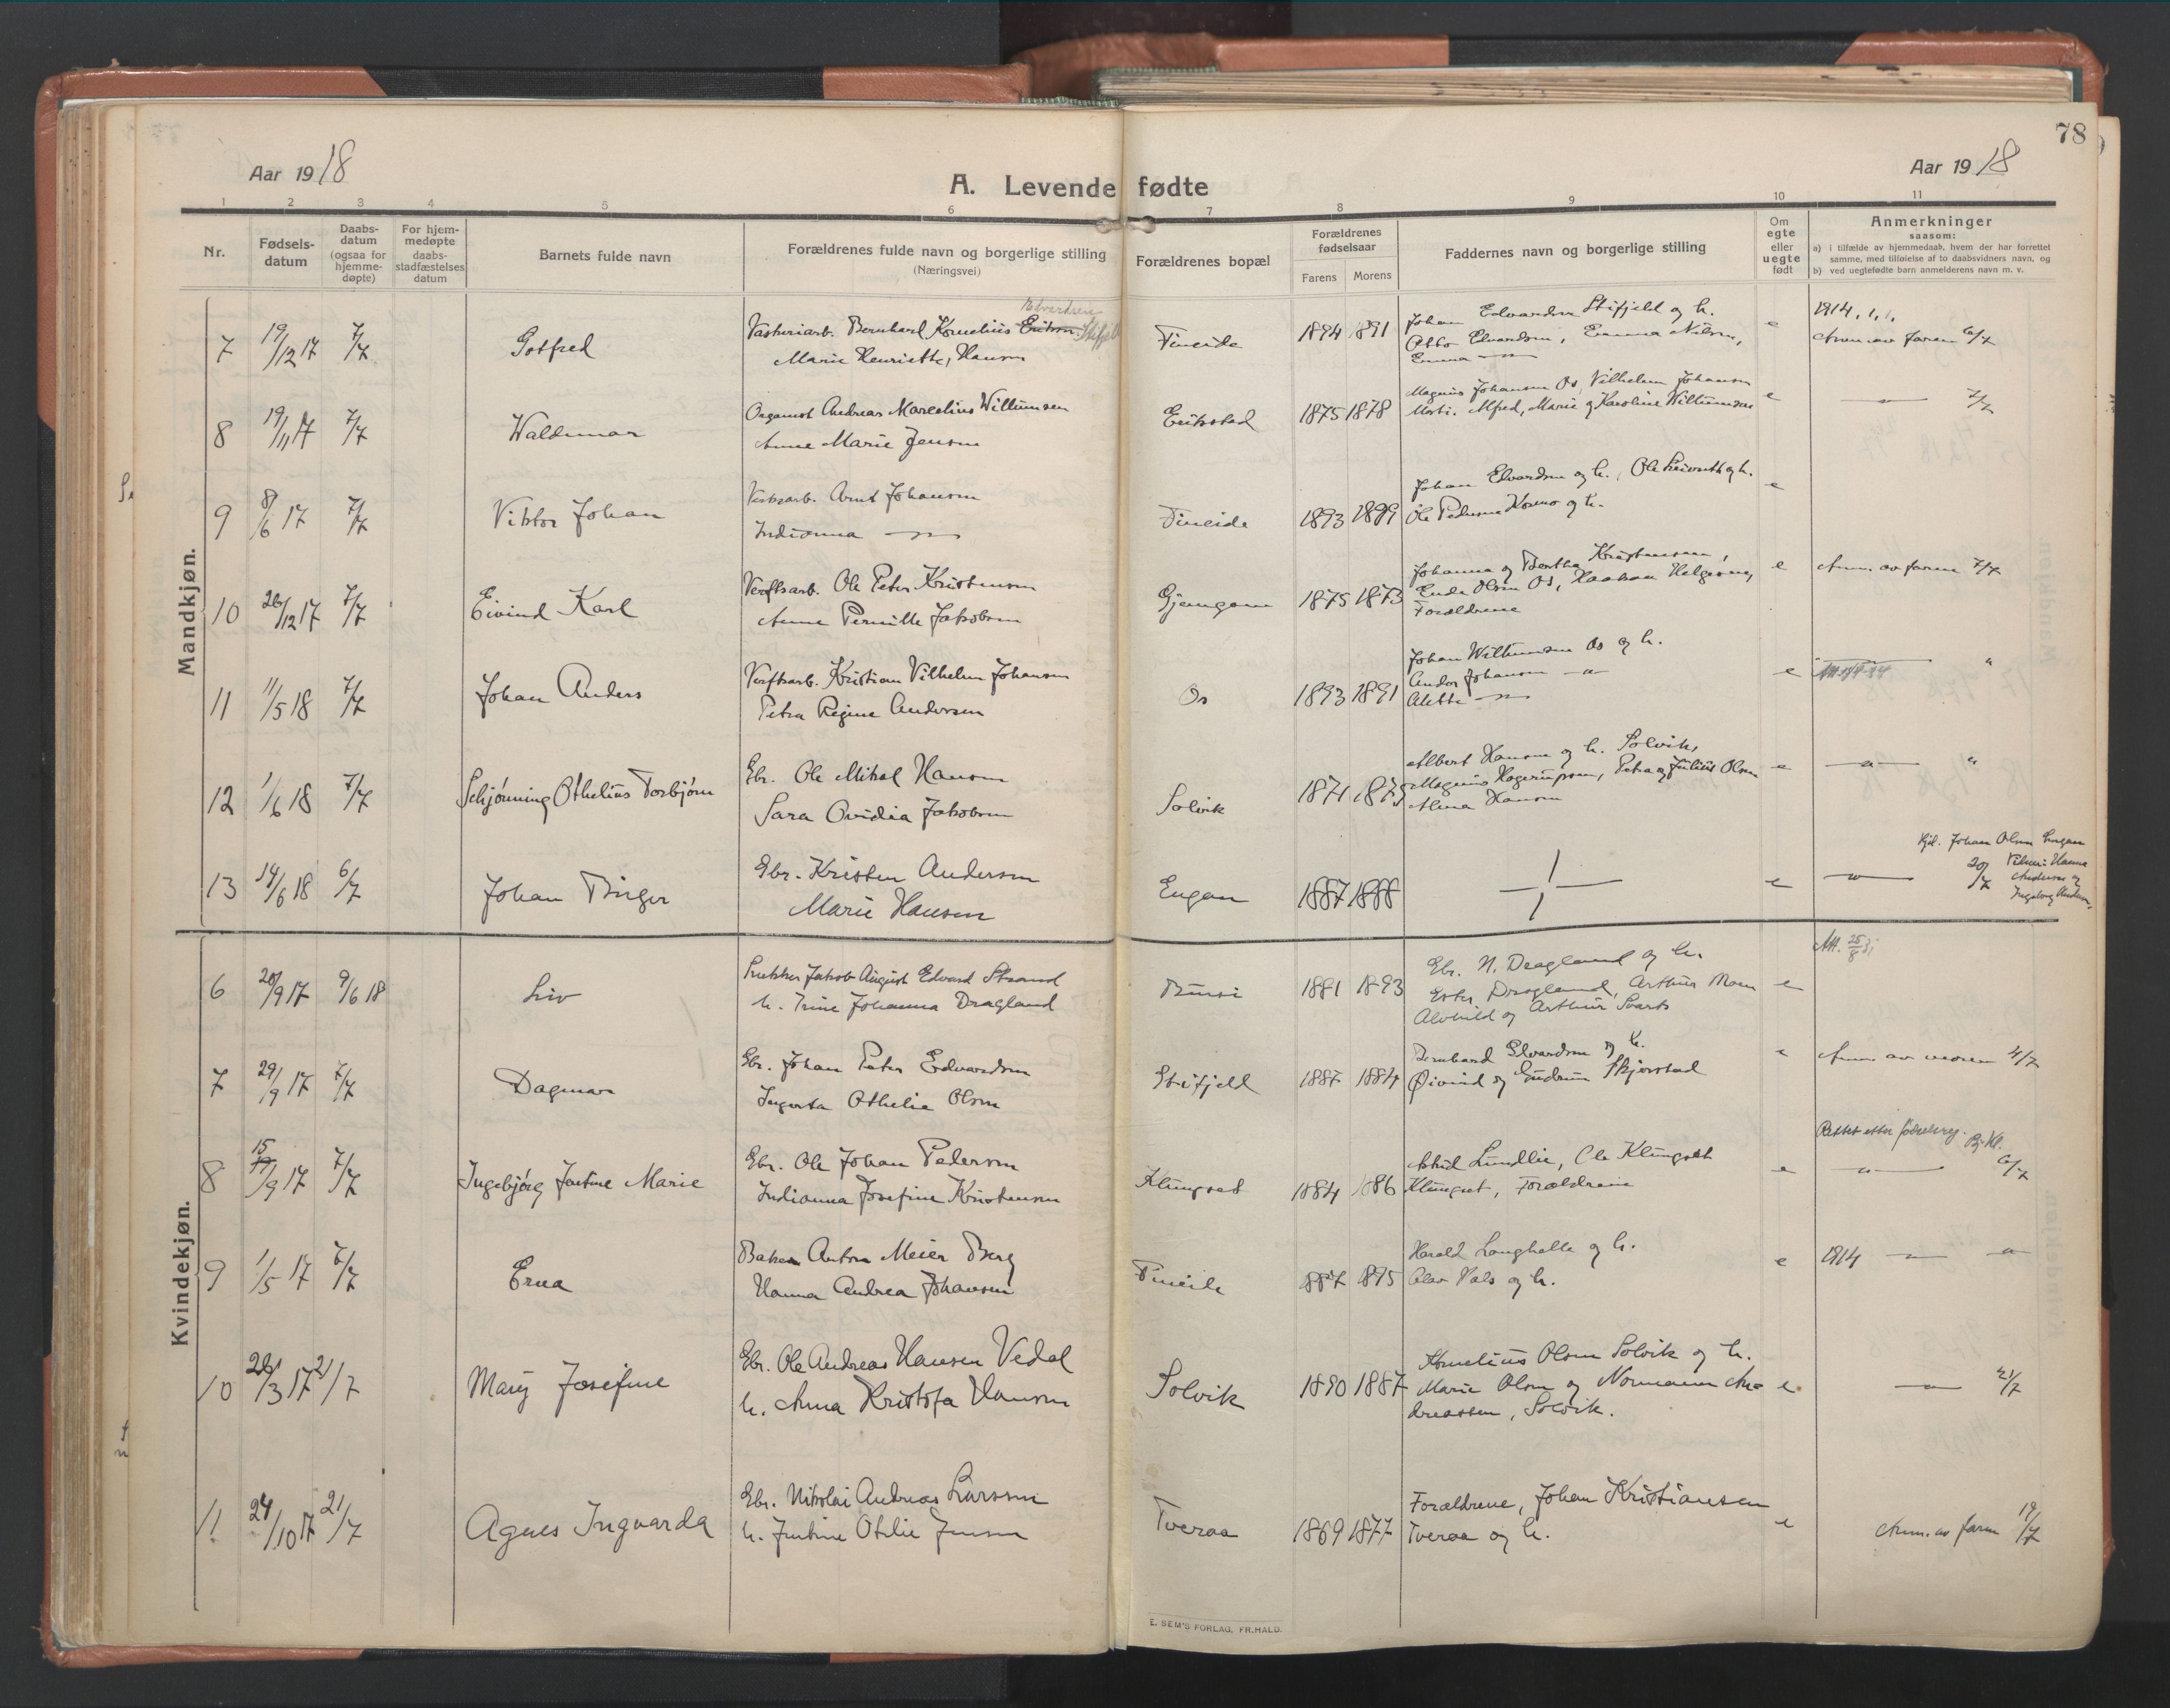 78
Aar 1918
A. Levende fødte
Aar 1918
1 2 3 4 5 6 7 8 9 10 11
Nr.
Fødsels-
datum
Daabs-
datum
(ogsaa for
hjemme-
døpte)
For hjem-
medøpte
daabs-
stadfæstelses
datum
Barnets fulde navn
Forældrenes fulde navn og borgerlige stilling
(Næringsvei)
Forældrenes bopæl
Forældrenes
fødselsaar
Farens Morens
Faddernes navn og borgerlige stilling
Om
egte
eller
uegte
født
Anmerkninger
saasom:
a) i tilfælde av hjemmedaab, hvem der har forrettet
samme, med tilføielse af to daabsvidners navn, og
b) ved uegtefødte barn anmelderens navn m. v.
Mandkjøn.
7 19/12 17 7/7 Gotfred
Bernhard Kornelius Stifjeld
Marie Henriette, Hansen
Fineide 1894 1891
Johan Edvardsen Stifjeld og h.
Otto Edvardsen, Emma Nilsen,
Emma
e
1914
Anm. av faren 6/7
8 19/11 17 7/7 Waldemar
Organist Andreas Marelius Willumsen
Anne Marie Jensen
Erikstad 1875 1878
Magnus Johansen Os, Vilhelm Johansen
Alfred, Marie og Karoline Willumsen
e 7/7
9 8/6 17 7/7 Viktor Johan
Arnt Johansen
Indianna
Fineide 1893 1899
Johan Edvardsen og h., Ole
Ole Pedersen og h.
e
10 26/12 17 7/7 Eivind Karl
Verftsarb. Ole Peter Kristensen
Anne Pernille Jakobsen
Gjemgam 1875 1873
Johanna og Bertha Kristensen,
Olsen Os, Haakon Helgesen,
Forældrene
e Anm. av faren 7/7
11 11/5 18 7/7 Johan Anders
Verftsarb. Kristian Vilhelm Johansen
Petra Regine Andersen
Os 1893 1891
Johan Willumsen Os og h.
Andor Johansen
Alette
e "
12 1/6 18 7/7 Schjønning Othelius Torbjørn
Gbr. Ole Mikal Hansen
Sara Ovidia Jakobsen
Solvik 1871 1875
Albert Hansen og h. Solvik,
Magnus Hagerupsen, Petra og Julius Olsen
Alma Hansen
e "
13 14/6 18 6/7 Johan Birger
Gbr. Kristen Andersen
Marie Hansen
Engan 1887 1888
e
Hjd. Johan Olsen Engan
20/7 Vidner: Hanna
Andersen og
Ingeborg Andersen
Kvindekjøn.
6 20/9 17 9/6 18 Liv
Jakob August Edvard Strand
h. Trine Johanna Dragland
Bursi 1881 1893
Gbr. N. Dragland og h.
Ester Dragland, Arthur Moen
Alvhild og Arthur Svarts
e
Att. 25/8 31
7 29/9 17 7/7 Dagmar
Gbr. Johan Peter Edvardsen
Othelie Olsen
Stifjeld 1887 1884
Bernhard Edvardsen og h.
Øivind og Gudrun Skjørstad
e Anm. av moren 4/7
8 15/9 17 7/7 Ingebjørg Justine Marie
Gbr. Ole Johan Pedersen
Indianna Josefine Kristensen
Klungset 1884 1886
Astrid Lundlie, Ole Klungset
Klungset, Forældrene
e
Rettet etter fødselsreg.
6/7
9 1/5 17 7/7 Erna
Baker Anton Meier Berg
Hanna Andrea Johansen
Fineide 1887 1895
Harald Langhelle og h.
Olav Vals og h.
e 1914
10 28/3 17 21/7 Mary Josefine
Gbr. Ole Andreas Hansen Vedal
h. Anna Kristofa Hansen
Solvik 1890 1887
Kornelius Olsen Solvik og h.
Marie Olsen og Normann An-
dreassen, Solvik.
e 21/7
11 24/10 17 21/7 Agnes Ingvarda
Gbr. Nikolai Andreas Larssen
h. Justine Otilie Jensen
Tveraa 1869 1877
Forældrene, Johan Kristiansen
Tveraa og h.
e Anm. av faren 19/7
E. SEM'S FORLAG, FR.HALD.